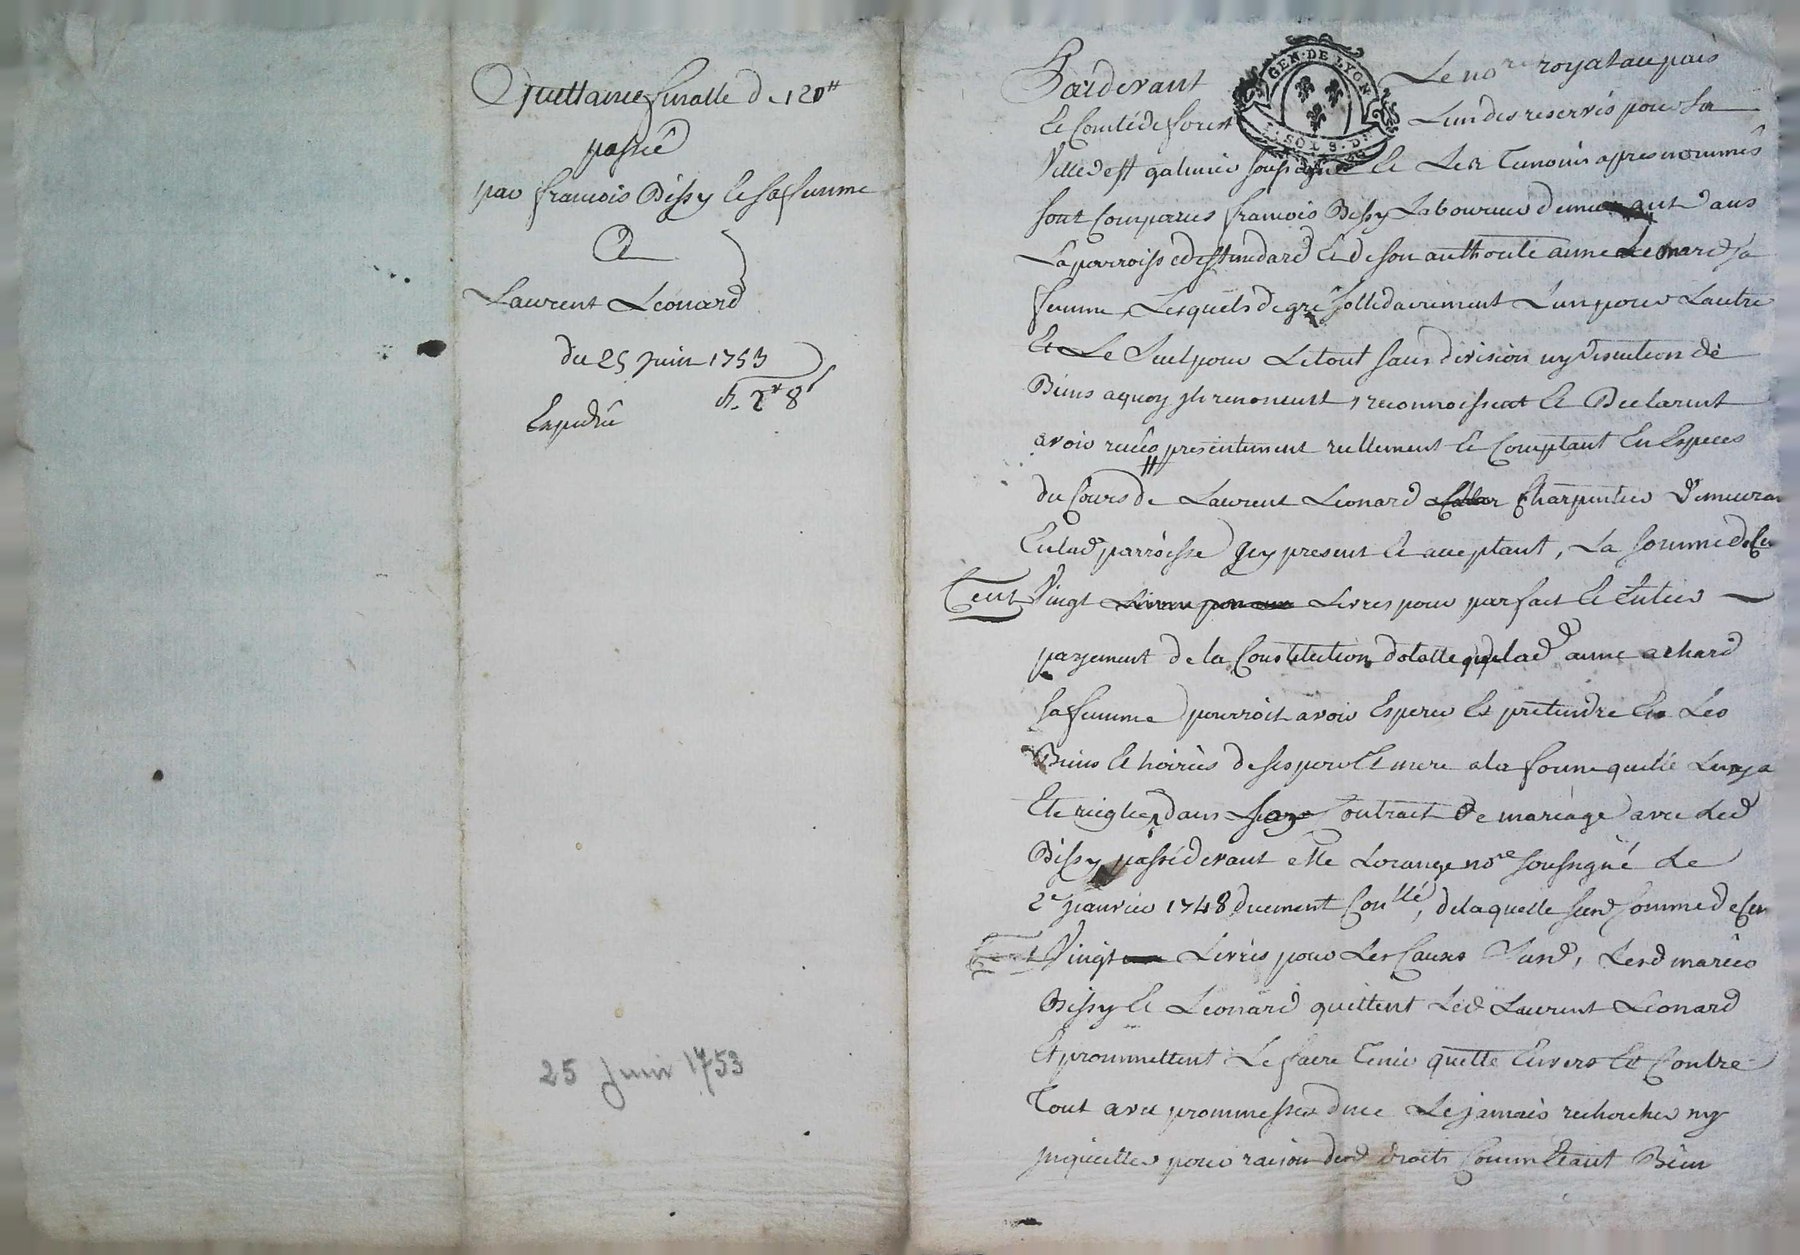 Quittance finalle de 120tt
passée
par francois Bissy et sa femme
A
Laurent Leonard
du 25 juin 1753
Expediée
25 Juin 1753
GEN. DE LYON
SOLS. D
Pardevant Le nore royal au païs
Et Comté de forest L'un des reservés pour La
Ville de st galmier soussigné Et Les Temoins apres nommés
sont Comparus francois Bissy Laboureur demeurant dans
La parroisse de st medard Et de son authorité anne Leonard sa
femme, Lesquels de gré sollidairement L'un pour L'autre
Et Le seul pour Le tout sans division ny discution de
Biens a quoy ils renoncent, reconnoissent Et Declarent
avoir reçeu presentement réellement Et Comptant En Especes
du Cours de Laurent Leonard Charpentier Demeuran
En lad parroisse Jcy present Et acceptant, La somme de
Cent Vingt Livres pour parfait Et Entier
payement de la Constitution dotalle que lad anne
sa femme pourroit avoir Esperer Et pretendre Es Les
Biens Et hoiries de ses pere Et mere a la forme quelle Luy a
Ete reiglée dans Contrait de mariage avec Led
Bissy passé devant Me Lorange nore soussigné Le
2e janvier 1748 duement Conllé, de laquelle susd somme de
Cent Vingt Livres pour Les Causes Susd, Lesd mariés
Bissy Et Leonard quittent Led Laurent Leonard
Et prommettent Le faire Tenir quitte Envers Et Contre
Tout avec prommesses de ne Le jamais rechercher ny
jnquietter pour raison desd droits Comm Etant Bien